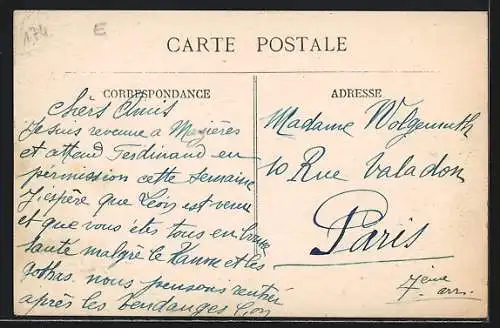 174
E
CARTE POSTALE
CORRESPONDANCE
ADRESSE
Chers Amis
Je suis revenue a Mazières
et attend Ferdinand en
permission cette semaine
J'espère que Léon est venu
et que vous êtes tous en bonne
santé malgré le Kanon et les
gothas. nous pensons rentrer
après les vendanges
Madame Wolgemuth
10 Rue Valadon
Paris
7ème
arr.